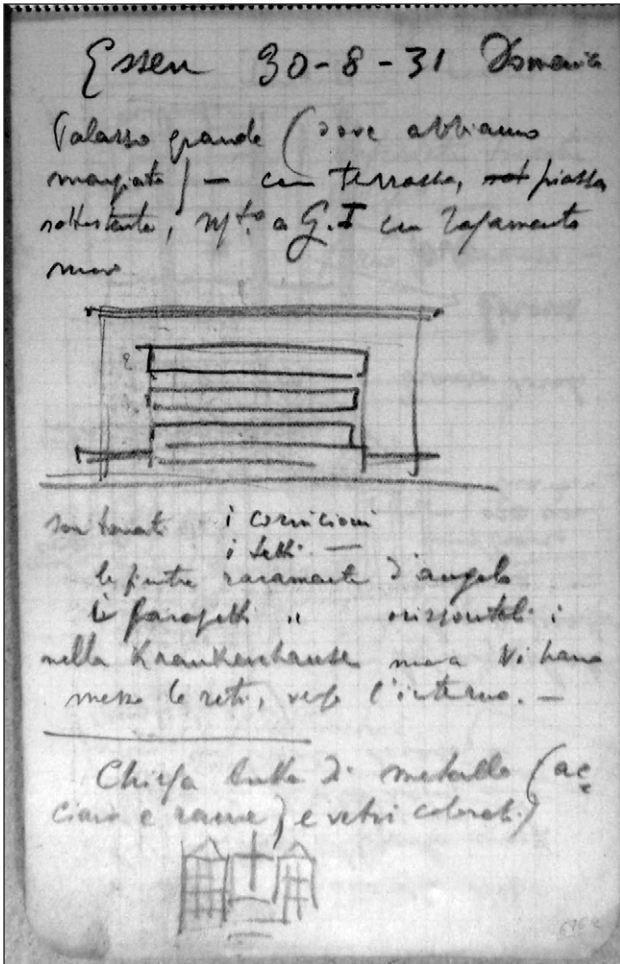 Essen 30-8-31 Domenica
Palazzo grande (dove abbiamo
mangiato) — con terrazza, piazza
sottostante, a G.T con
i cornicioni
i tetti —
le finestre raramente d'angolo
i parapetti " orizzontali :
nella Krankenhause Vi hanno
messo le reti, verso l'interno. —
Chiesa tutta di metallo (ac
ciaio e rame) e vetri colorati)